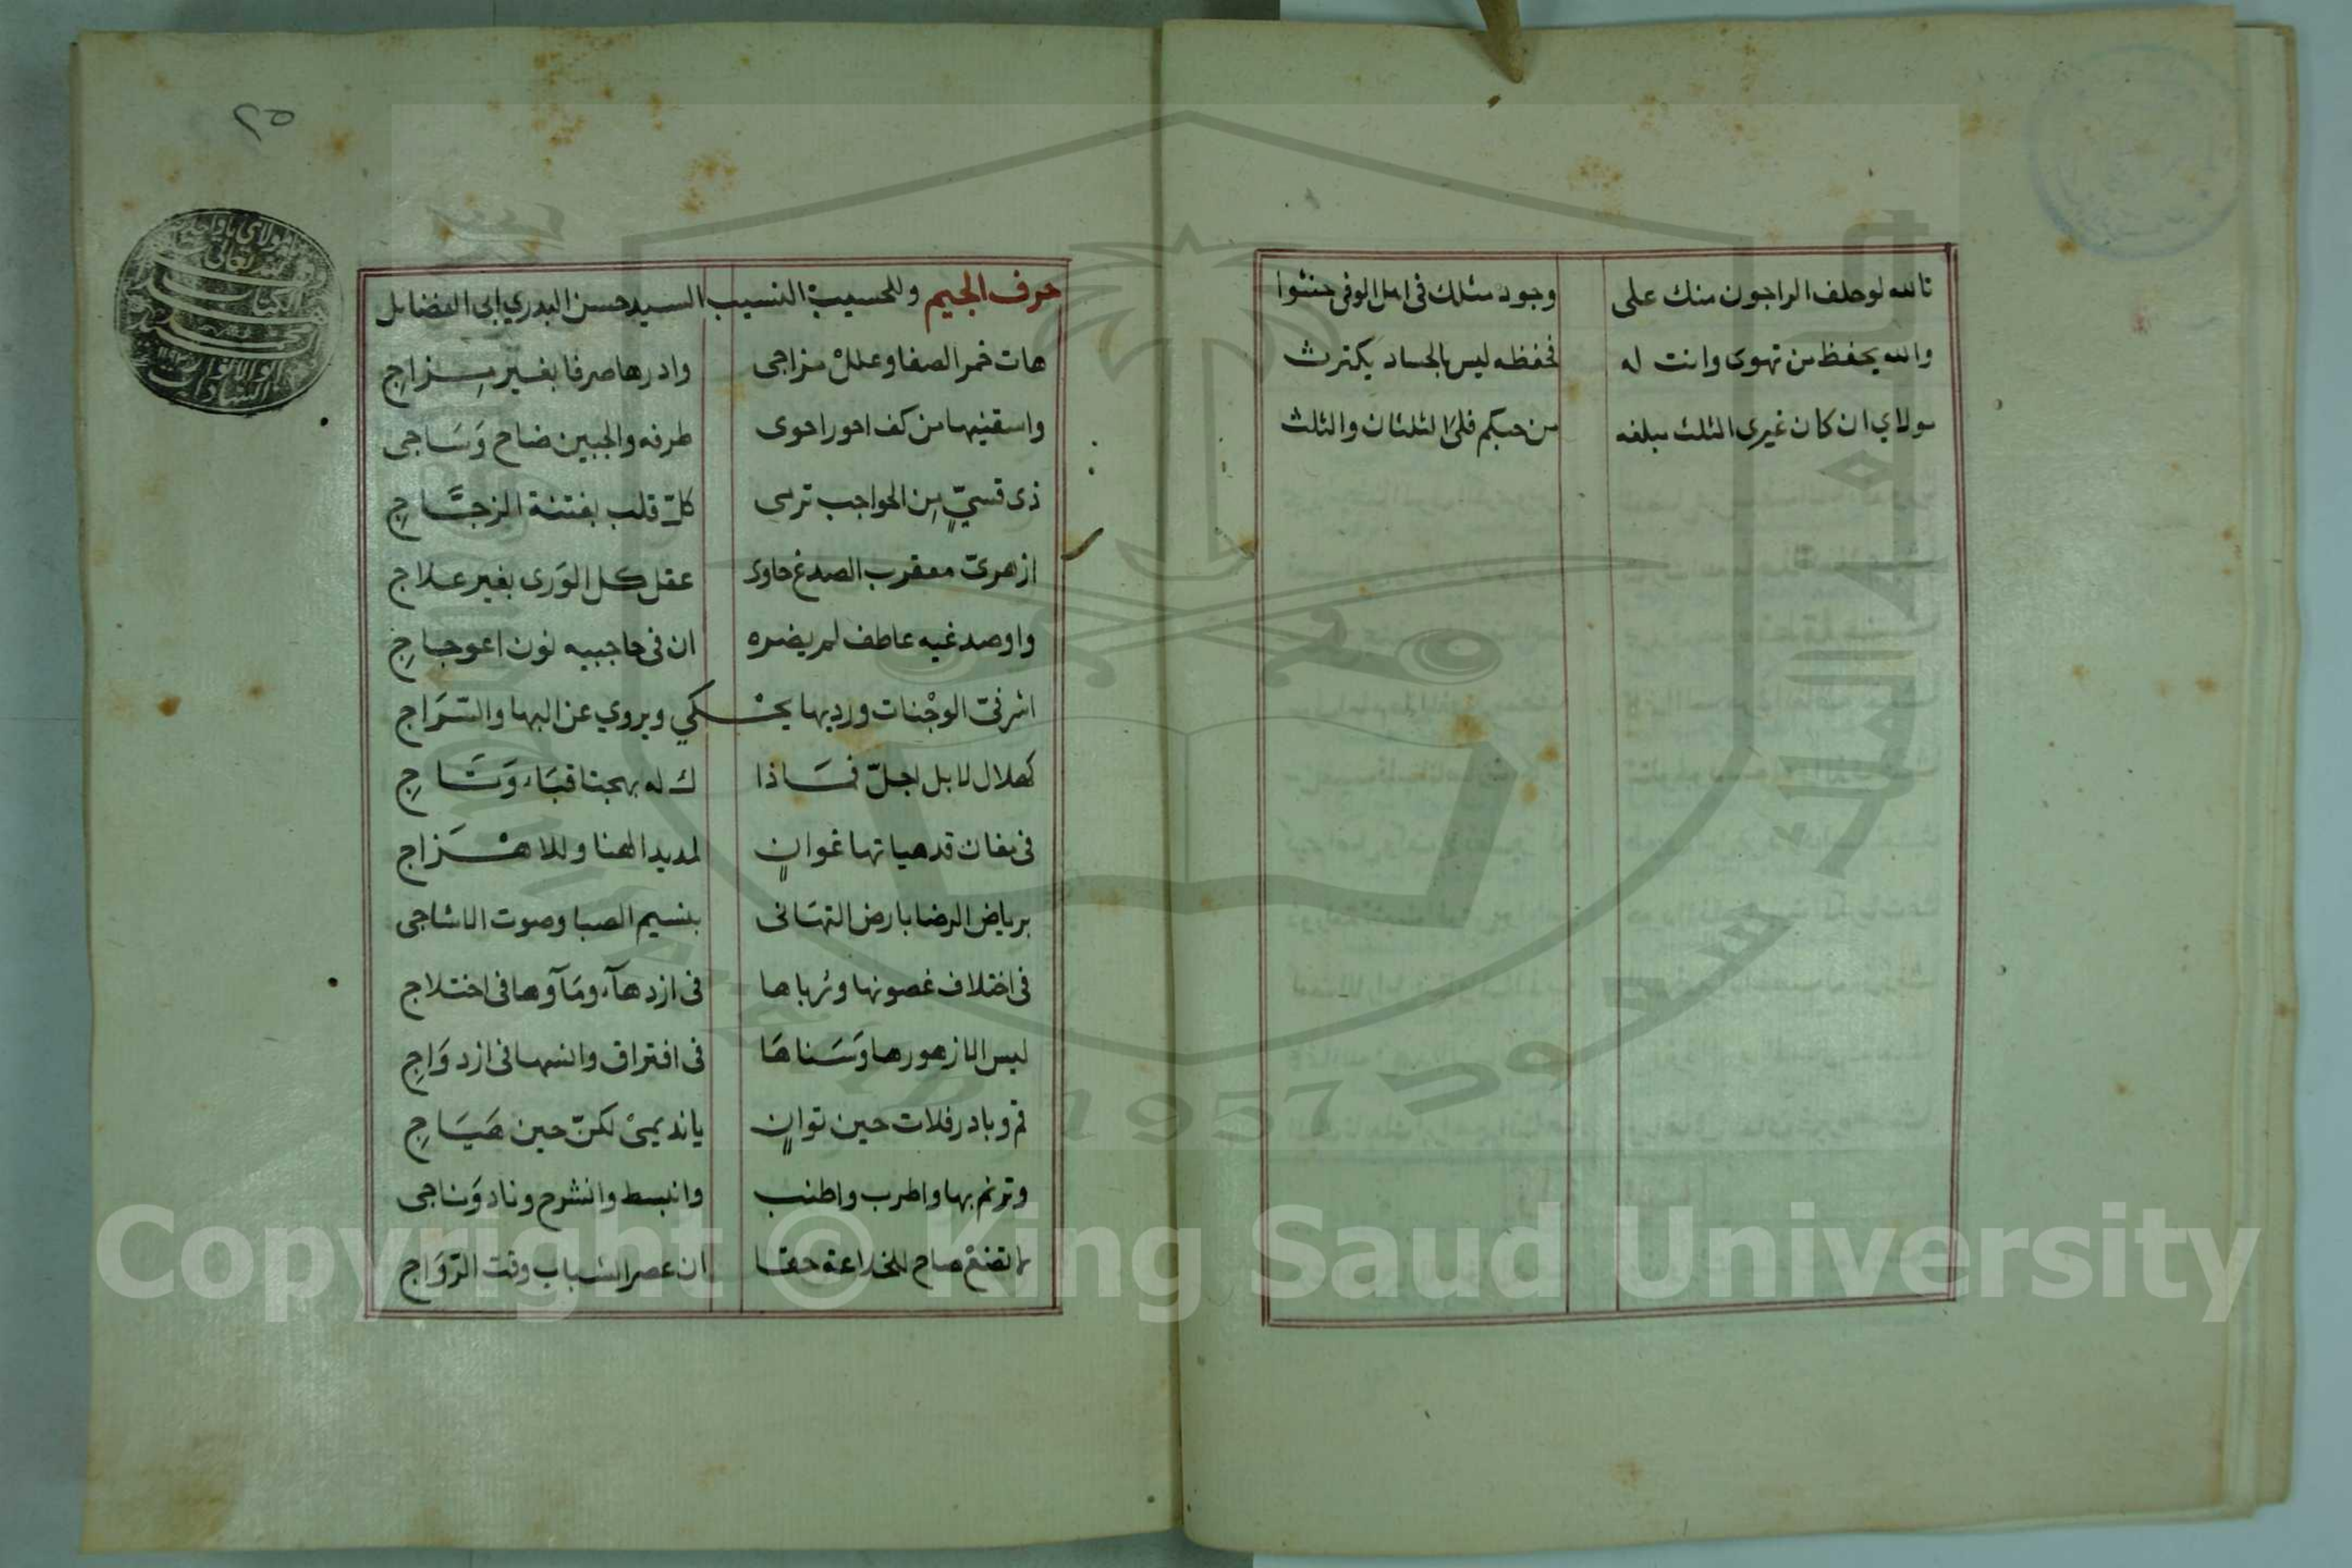 تالله لوحلف الراجون منك على وجود مثلك فى اهل الوفى حنثوا
والله يحفظ من تهوى وانت له فحفظه ليس بالحساد يكترث
مولاي ان كان غيرى الثلث مبلغه من حبكم فلىَ الثلثان والثلث
٢٥
حرف الجيم وللحسيب النسيب السيد حسن البدري ابى الفضايل
هات خمر الصفا وعللْ مزاجى وادرها صرفا بغير مِزاجِ
واسقنيها من كف احور احوى طرفه والجبين ضاح وَسَاجى
ذى قسيّ مِن الحواجب ترمى كلّ قلب بفتنة الزجّاجِ
ازهرىّ معقرب الصدغ حاوى عقل كل الوَرى بغير علاج
واوصدغيه عاطف لم يضره ان فى حاجبيه نون اعوجاجِ
اشرفىّ الوجْنات ورديها يحْكي ويروي عن البها والسّرَاج
كهلال لا بل اجلّ فمَاذا ك له بهجتا قبَاء وَتَاجِ
فى مغان قد هياتها غوانٍ لمديد الهنا وللاهْزَاج
برياض الرضا بارض التهَانى بنسيم الصبا وصوت الشاجى
فى اختلاف غصونها ورُباها فى ازدهآء ومَآوها فى اختلاج
ليس الا زهورها وَسَناهَا فى افتراق والنهانى ازدوَاجِ
قم وبادر فلات حين توانٍ يا نديمىْ لكنّ حين هَيَاجِ
وترنم بها واطرب واطنب وانبسط وانشرح وناد وَناجى
لا تضعْ صاح للخداعة حقا ان عصر الشباب وقت الرّوَاج
Copyright © King Saud University
1957